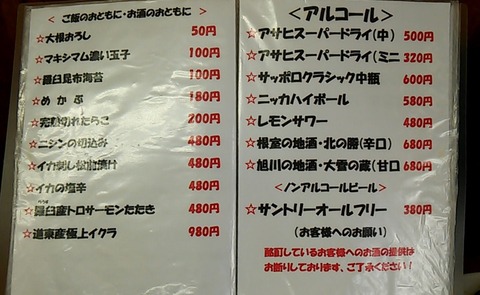 ご飯のおともに・お酒のおともに
☆大根おろし 50円
☆マキシマム濃い玉子 100円
☆羅臼昆布海苔 100円
☆めかぶ 180円
☆完熟切れたらこ 200円
☆ニシンの切込み 480円
☆イカ刺し松前漬け 480円
☆イカの塩辛 480円
☆羅臼産トロサーモンたたき 480円
☆道東産極上イクラ 980円
＜アルコール＞
☆アサヒスーパードライ(中) 500円
☆アサヒスーパードライ(ミニ 320円
☆サッポロクラシック中瓶 600円
☆ニッカハイボール 580円
☆レモンサワー 480円
☆根室の地酒・北の勝(辛口) 680円
☆旭川の地酒・大雪の蔵(甘口 680円
＜ノンアルコールビール＞
☆サントリーオールフリー 380円
(お客様へのお願い)
酩酊しているお客様へのお酒の提供は
お断りしております、ご了承ください！